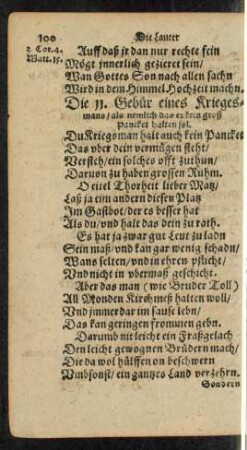 100 Die Lauter
2 Cor. 4.
Matt. 25.
Auff daß jr dan nur rechte fein
Mögt jnnerlich gezieret sein/
Wan Gottes Son nach allen sachn
Wird in dem Himmel Hochzeit machn.
Die 11. Gebür eines Krieges-
mans/ als nemlich das er kein groß
Pancket halten sol.
Du Kriegsman halt auch kein Pancket
Das vber dein vermügen steht/
Versteh/ ein solches offt zuthun/
Daruon zu haben grossen Ruhm.
O eitel Thorheit lieber Matz/
Laß ja eim andern diesen Platz
Im Gastbot/ der es besser hat
Als du/ vnd halt das dein zu rath.
Es hat ja zwar gut Leut zu ladn
Sein maß/ vnd kan gar wenig schadn/
Wans selten/ vnd in ehren pflicht/
Vnd nicht in vbermaß geschicht.
Aber das man (wie Bruder Toll)
All Monden Kirchmeß halten woll/
Vnd jmmerdar im sause lebn/
Das kan geringen frommen gebn.
Darumb nit leicht ein Fraßgelach
Den leicht gewognen Brüdern mach/
Die da wol hülffen on beschwern
Vmbsonst/ ein gantzes Land verzehrn.
Sondern